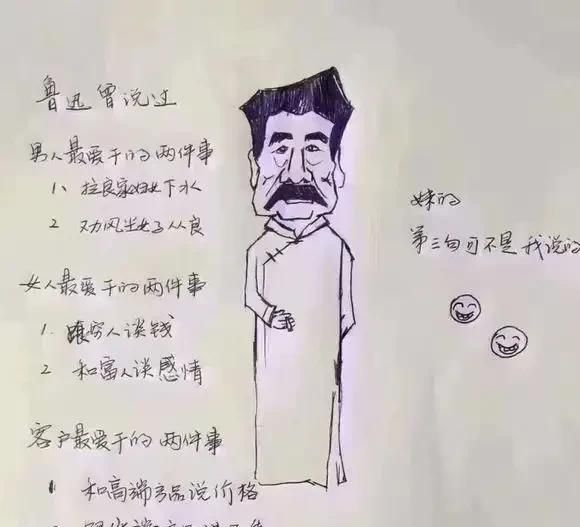 鲁迅曾说过
男人最爱干的两件事
1、拉良家妇女下水
2 劝风尘女子从良
女人最爱干的两件事
1. 跟穷人谈钱
2 和富人谈感情
客户最爱干的两件事
1 和高端产品说价格
妹的
第三句可不是我说的